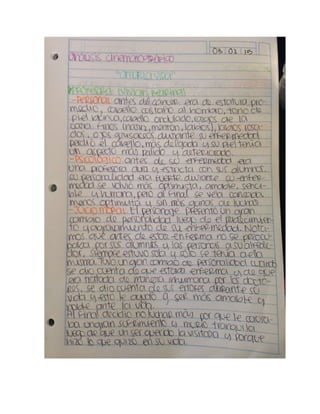 03 02 15
Análisis cinematográfico
Profesora (Vivian Bearing)
-Personal: antes del cáncer era de estatura pro-
medio, cabello castaño al hombro, tono de
piel latina, cabello ondulado, rasgos de la
cara finos (nariz, mentón, labios), labios rosa-
dos, ojos grisaceos, durante su enfermedad
perdió el cabello, más delgada y su piel tenía
un aspecto más pálido y deteriorado.
-Psicológico: antes de su enfermedad era
una profesora dura y estricta con sus alumnos,
su personalidad era fuerte durante su enfer-
medad se volvió más optimista, amable, sensi-
ble y humana, pero al final se veía cansada
menos optimista y sin más ganas de luchar.
-Juicio moral: El personaje presentó un gran
cambio de personalidad luego de el padecimien-
to y agravamiento de su enfermedad. Nota-
mos que antes de estar enferma no se preocu-
paba por sus alumnos y las personas a su alrede-
dor, siempre estuvo sola y solo se tenía a ella
misma. Tuvo un gran cambio de personalidad cuando
se dio cuenta de que estaba enferma, y de que
era tratada de manera inhumana por los docto-
res, se dio cuenta de sus errores durante su
vida y esto le ayudó a ser más amable y
noble ante la vida.
Al final decidió no luchar más por que le causa-
ba un gran sufrimiento y murió tranquila
luego de que un ser querido la visitara y porque
hizo lo que quiso en su vida.